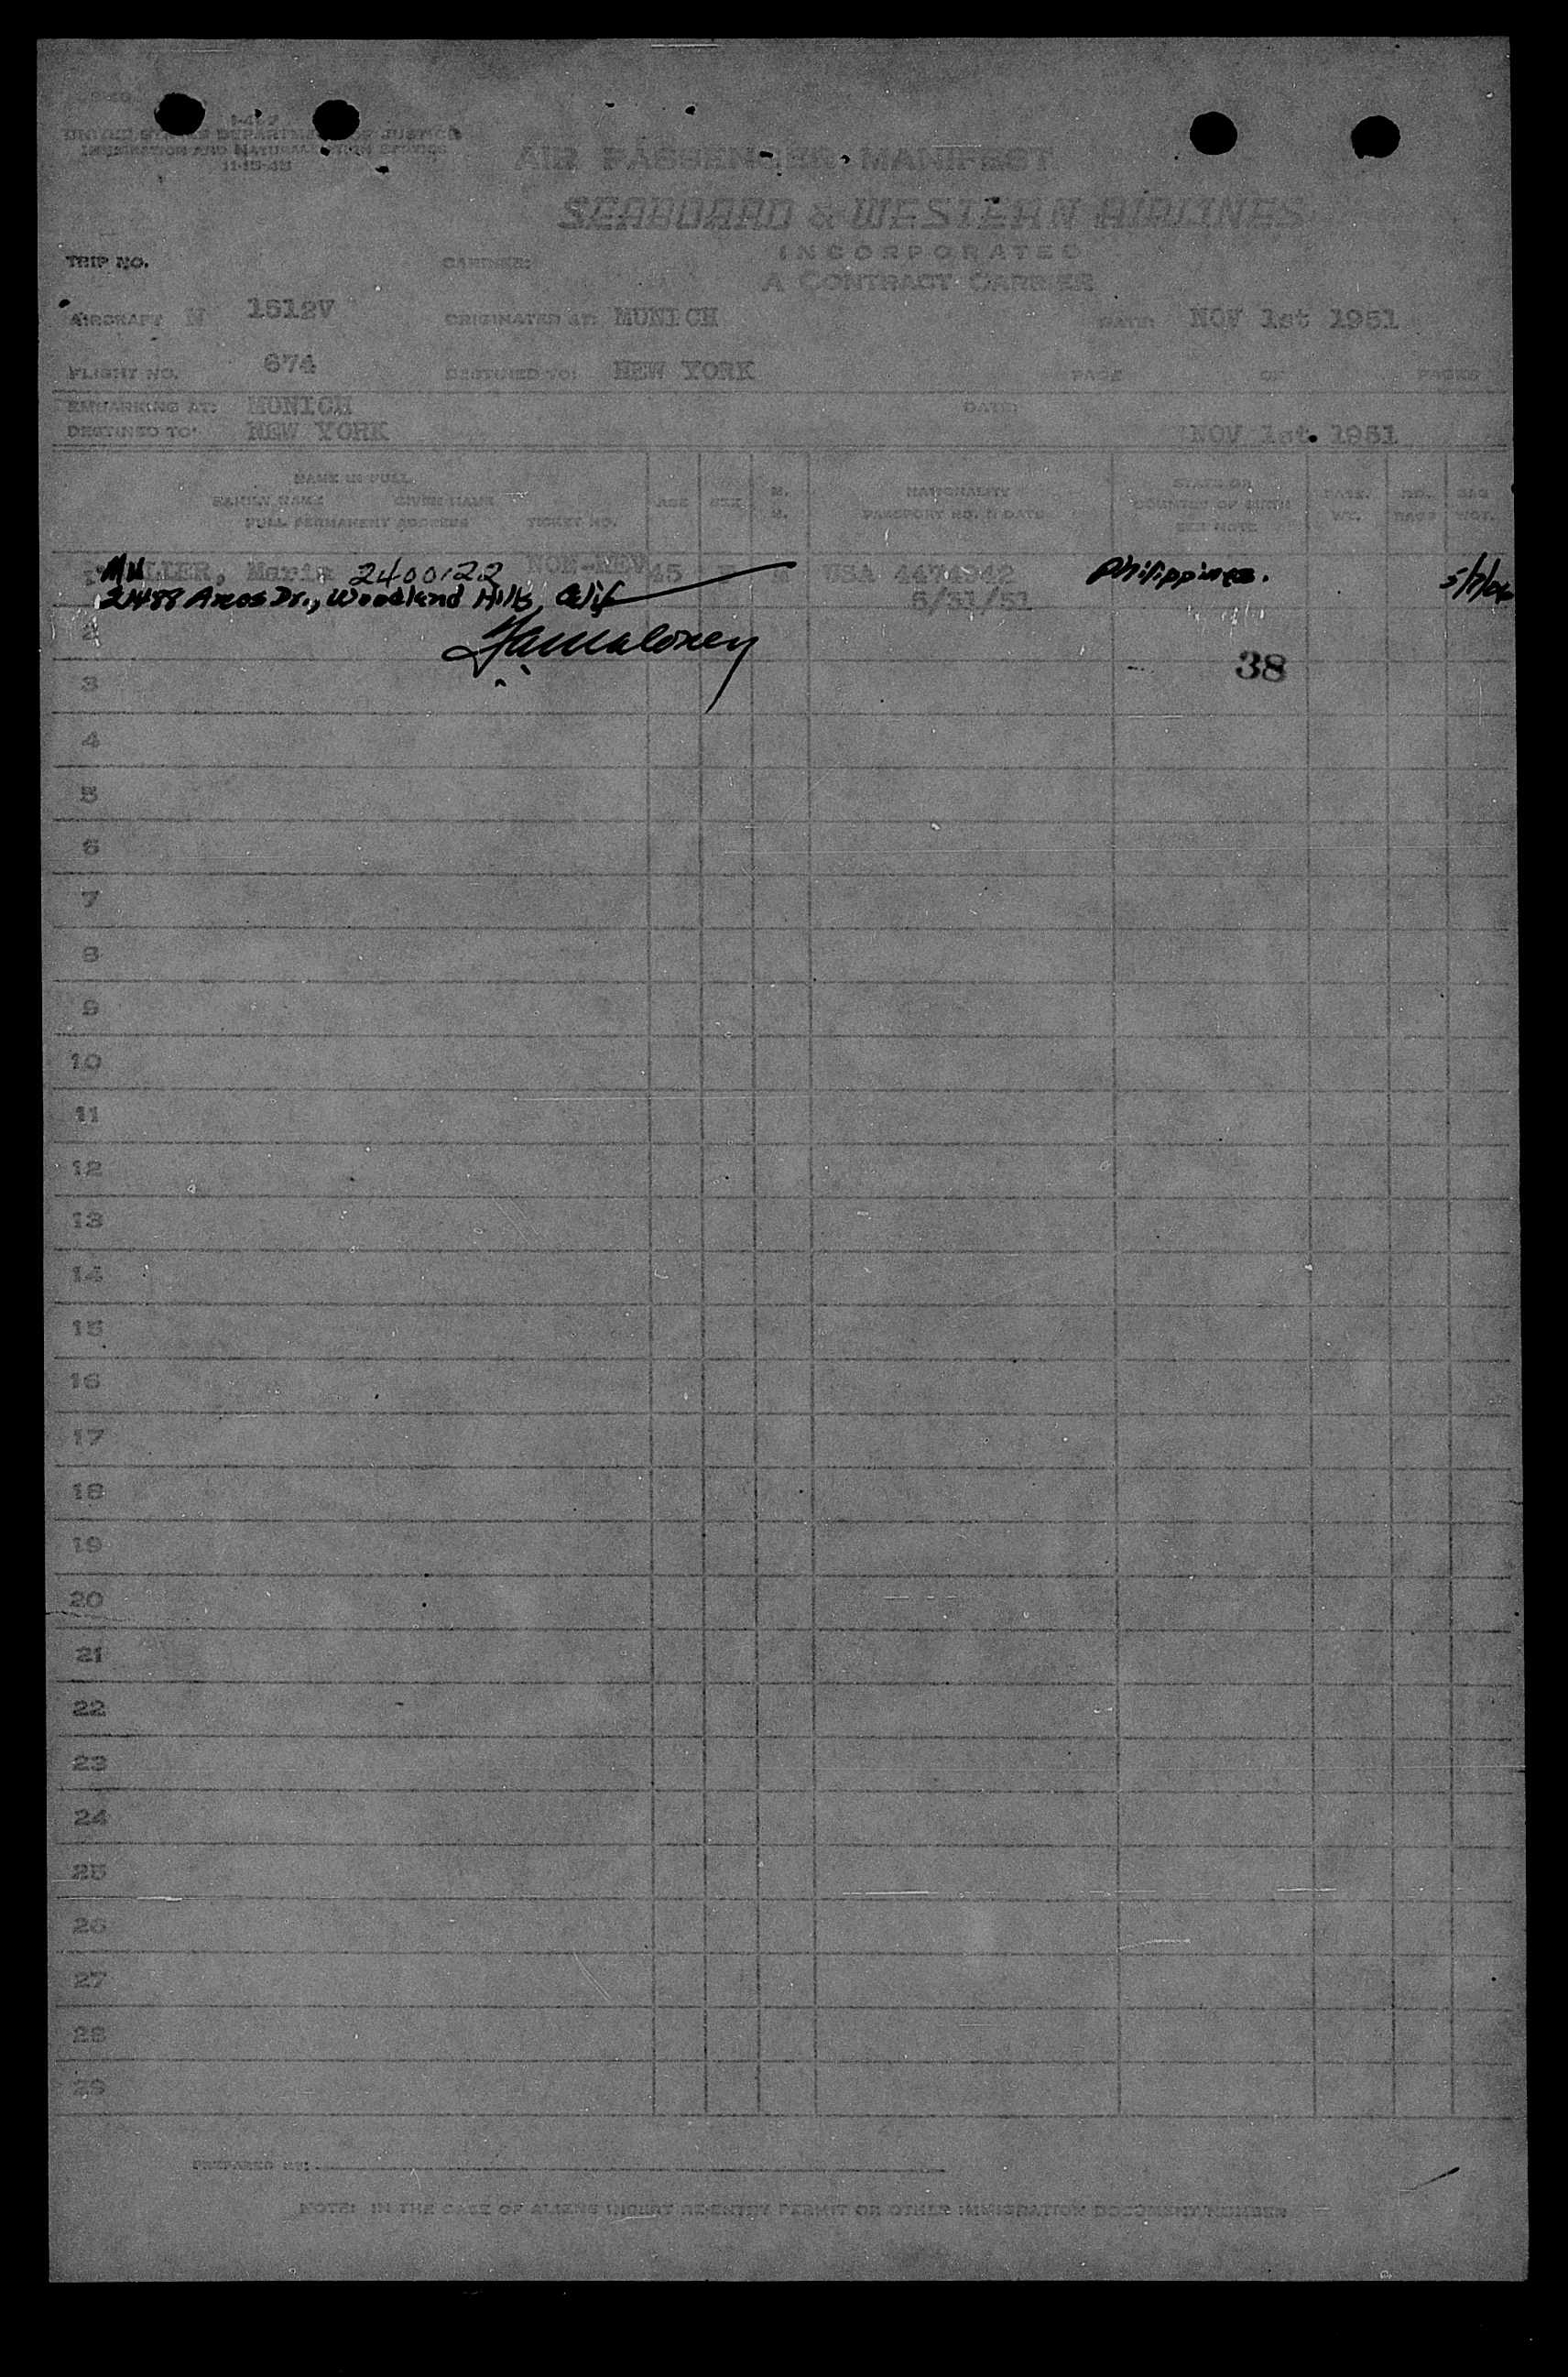 I-462
UNITED STATES DEPARTMENT OF JUSTICE
IMMIGRATION AND NATURALIZATION SERVICE
11-15-48
AIR PASSENGER MANIFEST
SEABOARD & WESTERN AIRLINES
INCORPORATED
A CONTRACT CARRIER
TRIP NO. CARRIER:
AIRCRAFT N 1512V ORIGINATED AT: MUNICH DATE: NOV 1st 1951
FLIGHT NO. 674 DESTINED TO: NEW YORK PAGE OF PAGES
EMBARKING AT: MUNICH DATE:
DESTINED TO: NEW YORK NOV 1st. 1951
NAME IN FULL
FAMILY NAME GIVEN NAME
FULL PERMANENT ADDRESS TICKET NO.
AGE
SEX
NATIONALITY
PASSPORT NO. N DATE
STATE OR
COUNTRY OF BIRTH
SEE NOTE
PASS.
WT.
NO.
BAGS
BAG
WGT.
1 MULLER, Maria 2400122 NON-REV 45 F M USA 4474942 Philippines.
Dr., Woodland Hills, Calif 5/31/51
2
38
3
4
5
6
7
8
9
10
11
12
13
14
15
16
17
18
19
20
21
22
23
24
25
26
27
28
29
PREPARED BY:
NOTE: IN THE CASE OF ALIENS INSERT RE-ENTRY PERMIT OR OTHER IMMIGRATION DOCUMENT NUMBER